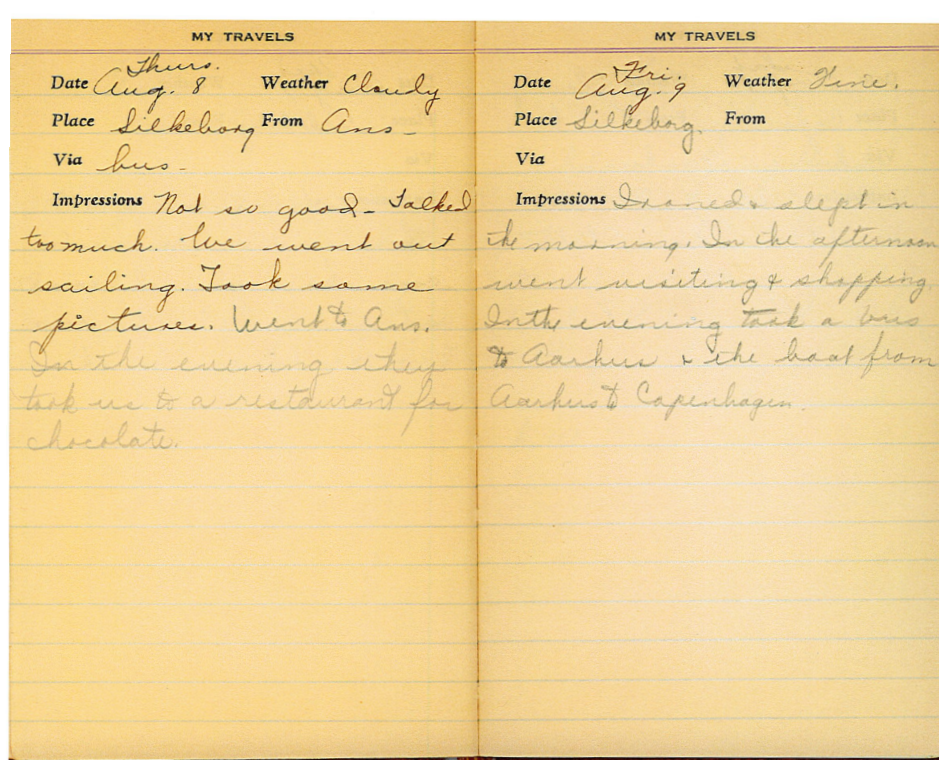 MY TRAVELS
Thurs.
Date Aug. 8 Weather Cloudy
Place Silkeborg From Ans -
Via bus -
Impressions Not so good - Talked
too much. We went out
sailing. Took some
pictures. Went to Ans.
In the evening they
took us to a restaurant for
chocolate.
MY TRAVELS
Fri.
Date Aug. 9 Weather Fine.
Place Silkeborg. From
Via
Impressions Ironed & slept in
the morning. In the afternoon
went visiting & shopping
In the evening took a bus
to Aarhus & the boat from
Aarhus to Copenhagen.